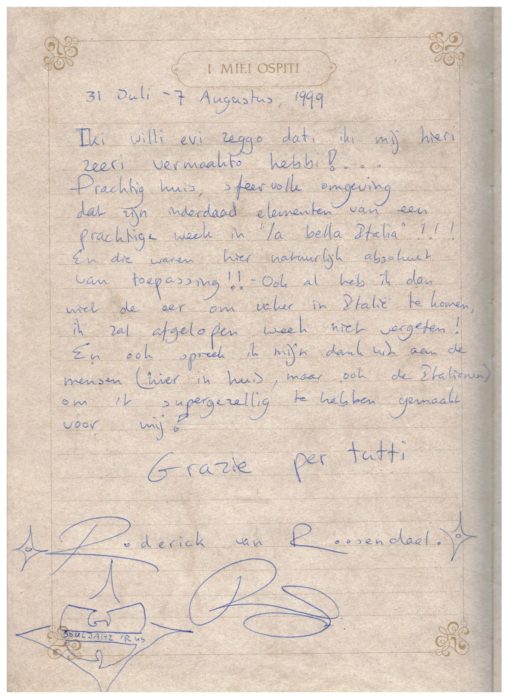 I MIEI OSPITI
31 Juli - 7 Augustus, 1999
Iki willi evi zeggo dati iki mij hieri
zeeri vermaakto hebbi! . . .
Prachtig huis, sfeervolle omgeving
dat zijn inderdaad elementen van een
prachtige week in "la bella Italia" !!!
En die waren hier natuurlijk absoluut
van toepassing!! - Ook al heb ik dan
niet de eer om vaker in Italië te komen,
ik zal afgelopen week niet vergeten!
En ook spreek ik mijn dank uit aan de
mensen (hier in huis, maar ook de Italianen)
om 't supergezellig te hebben gemaakt
voor mij!
Grazie per tutti
Roderick van Roosendaal.
SOULJAHZ 'R US